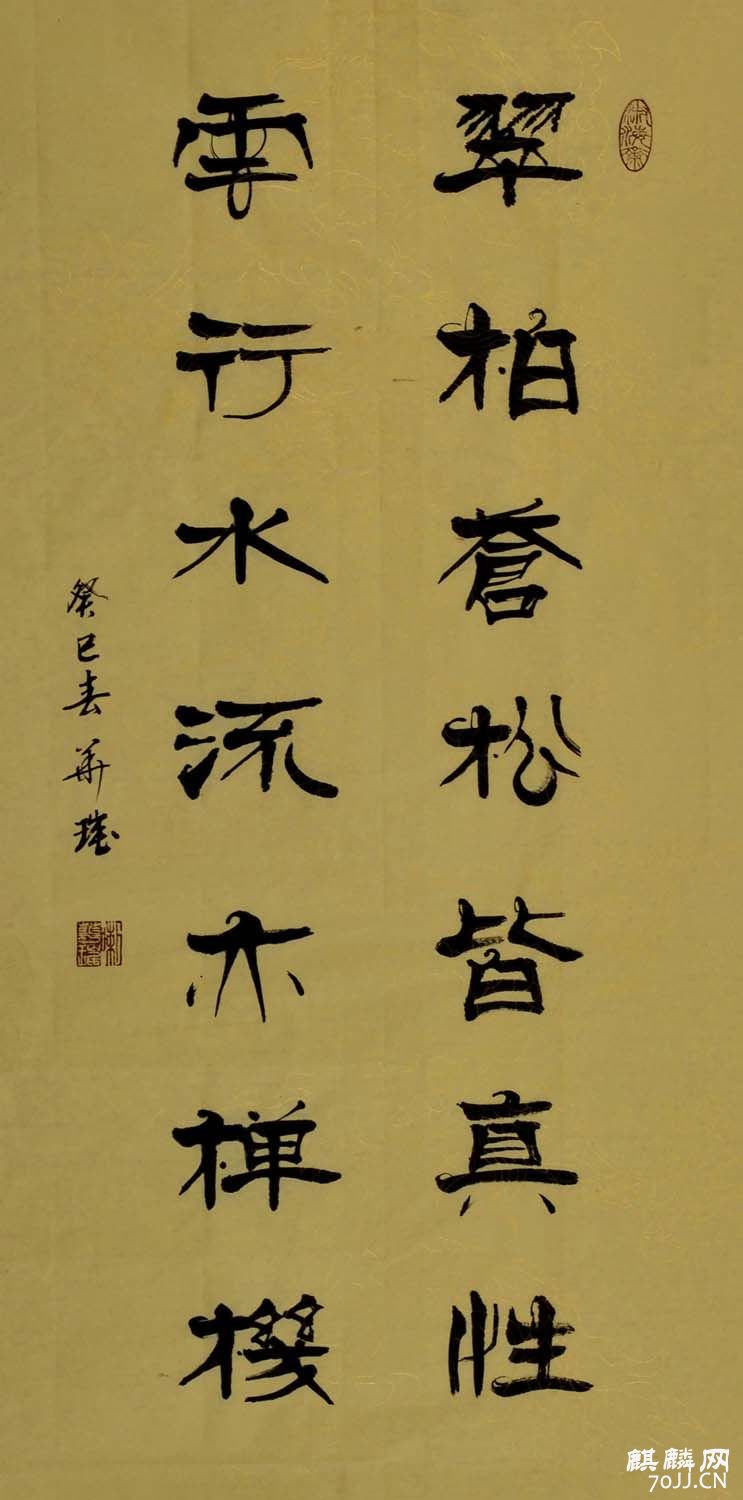 翠柏蒼松皆真性
雲行水流亦禅機
癸巳春華
麒麟网
70JJ.CN